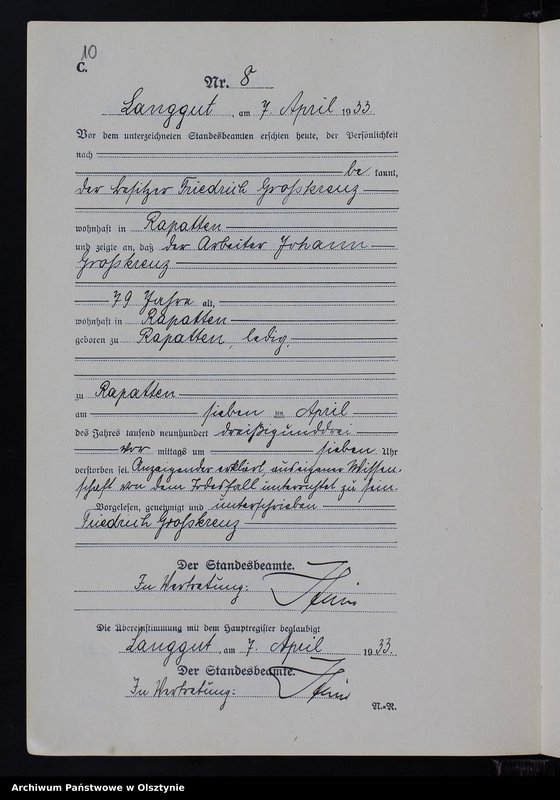 10
C.
Nr. 8
Langgut, am 7. April 1933.
Vor dem unterzeichneten Standesbeamten erschien heute, der Persönlichkeit
nach
bekannt,
der Besitzer Friedrich Großkreuz
wohnhaft in Rapatten
und zeigte an, daß der Arbeiter Johann
Großkreuz
79 Jahre alt,
wohnhaft in Rapatten
geboren zu Rapatten, ledig,
zu Rapatten
am sieben ten April
des Jahres tausend neunhundert dreißigunddrei
vor mittags um sieben Uhr
verstorben sei. Anzeigender erklärt, aus eigener Wissen-
schaft von dem Todesfall unterrichtet zu sein.
Vorgelesen, genehmigt und unterschrieben
Friedrich Großkreuz
Der Standesbeamte.
In Vertretung:
Die Übereinstimmung mit dem Hauptregister beglaubigt
Langgut, am 7. April 1933.
Der Standesbeamte.
In Vertretung:
N.=R.
Archiwum Państwowe w Olsztynie